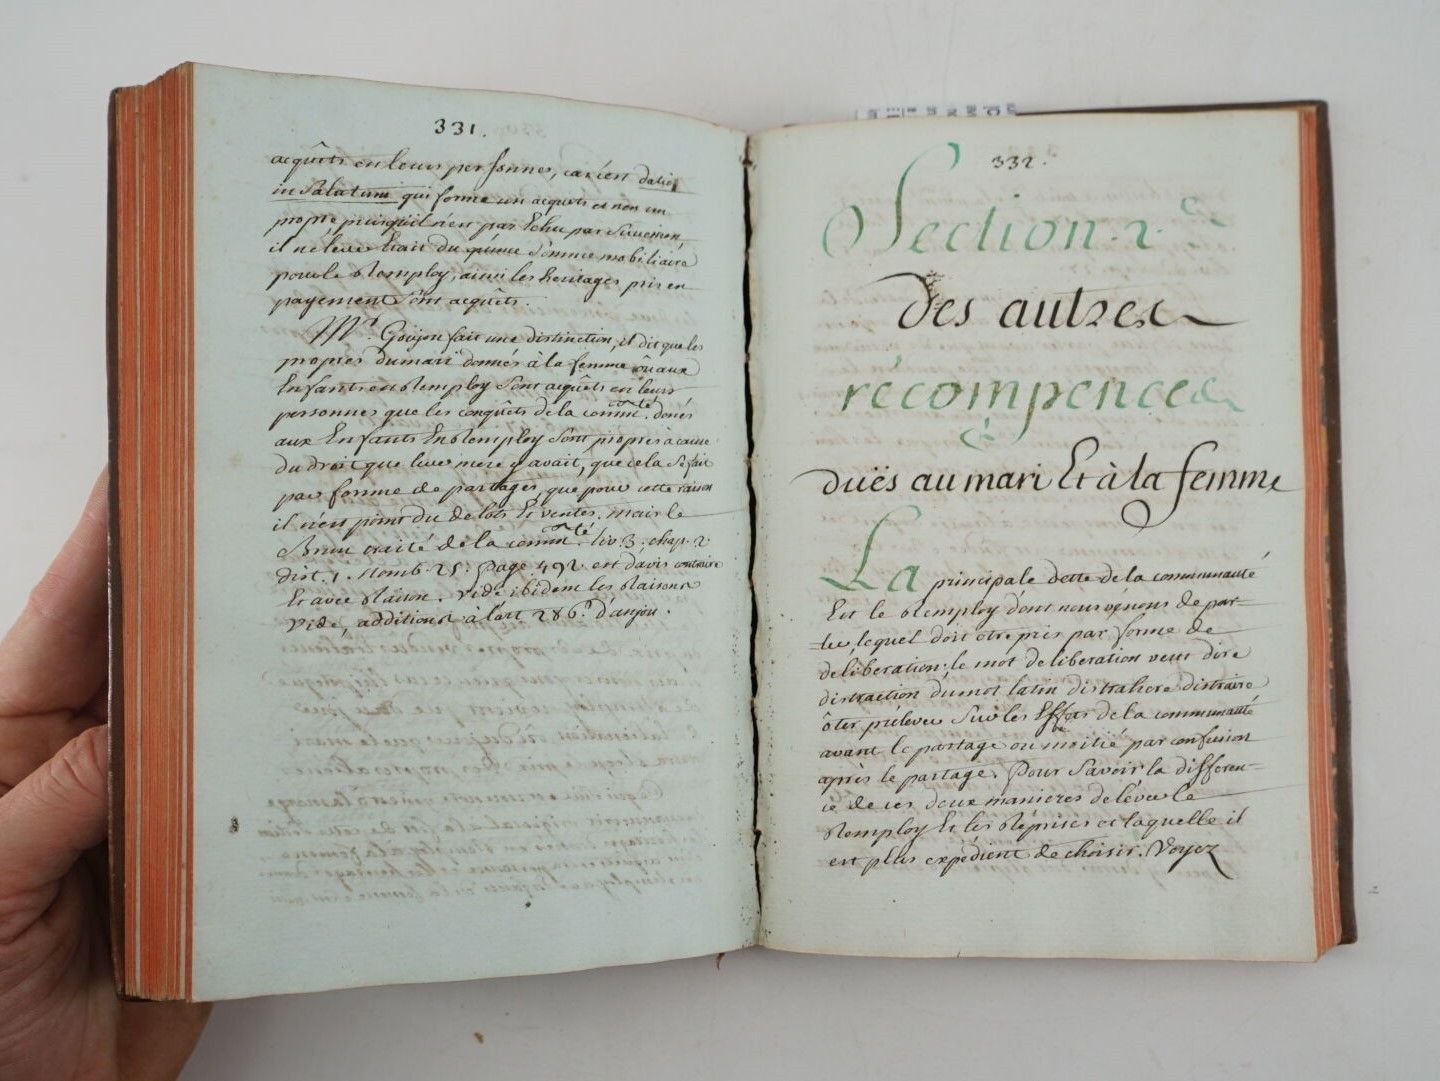 331.
acquêts en leurs personnes, car c'est datio
in solutum qui forme un acquets et non un
propre puisqu'il n'est pas Echu par Succession,
il ne leur était du qu'une Somme mobiliaire
pour le Remploy, ainsi les heritages pris en
payement Sont acquêts.
Mr. Goujon fait une distinction, il dit que les
propres du mari donnés à la femme où aux
Enfants en Remploy Sont acquêts en leurs
personnes que les conquêts de la commté. donés
aux Enfants En Remploy Sont propres à cause
du droit que leur mere y avait, que cela Se fait
par forme de partages, que pour cette raison
il n'est point du de lots Et ventes. mais le
Brun traité de la commté. liv. 3. chap. 2.
dist. 1. Nomb. 25. page 492. est d'avis contraire
Et avec Raison. vide ibidem les Raisons
Vide, additions à l'art 286. d'anjou.
332.
Section. 2e
des autres
récompences
duës au mari Et à la femme
La principale dette de la communauté
Est le Remploy dont nous venons de par-
ler, lequel doit etre pris par forme de
deliberation; le mot deliberation veut dire
distraction du mot latin distrahere distraire
ôter prélever Sur les Effets de la communauté
avant le partage ou moitié par confusion
après le partage. Pour Savoir la differen-
ce de ces deux manieres de léver le
Remploy Et les Reprises et laquelle il
est plus expédient de choisir. Voyez